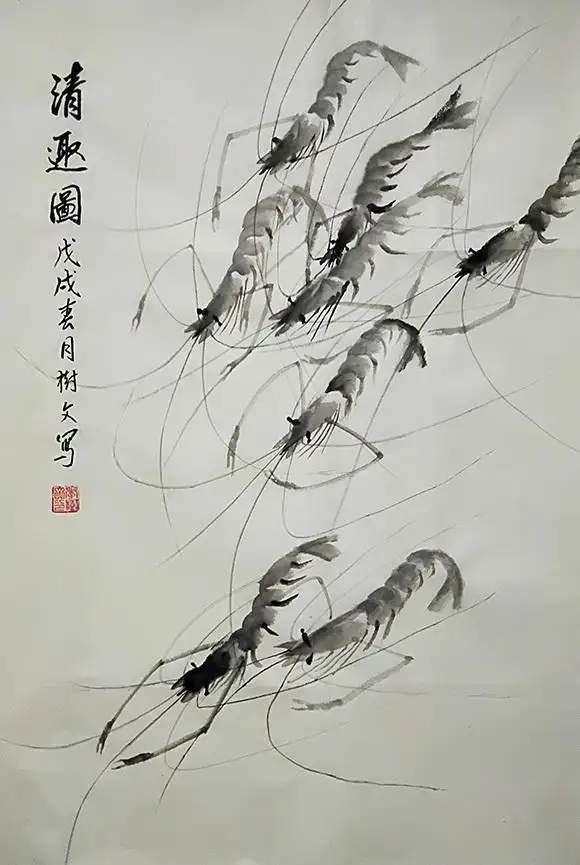 清趣圖
戊戌春月樹文写